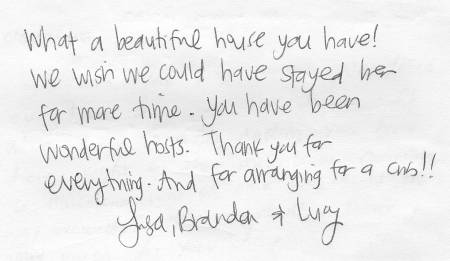 What a beautiful house you have!
We wish we could have stayed her
for more time. You have been
wonderful hosts. Thank you for
everything. And for arranging for a crib!!
Lisa, Brandon & Lucy